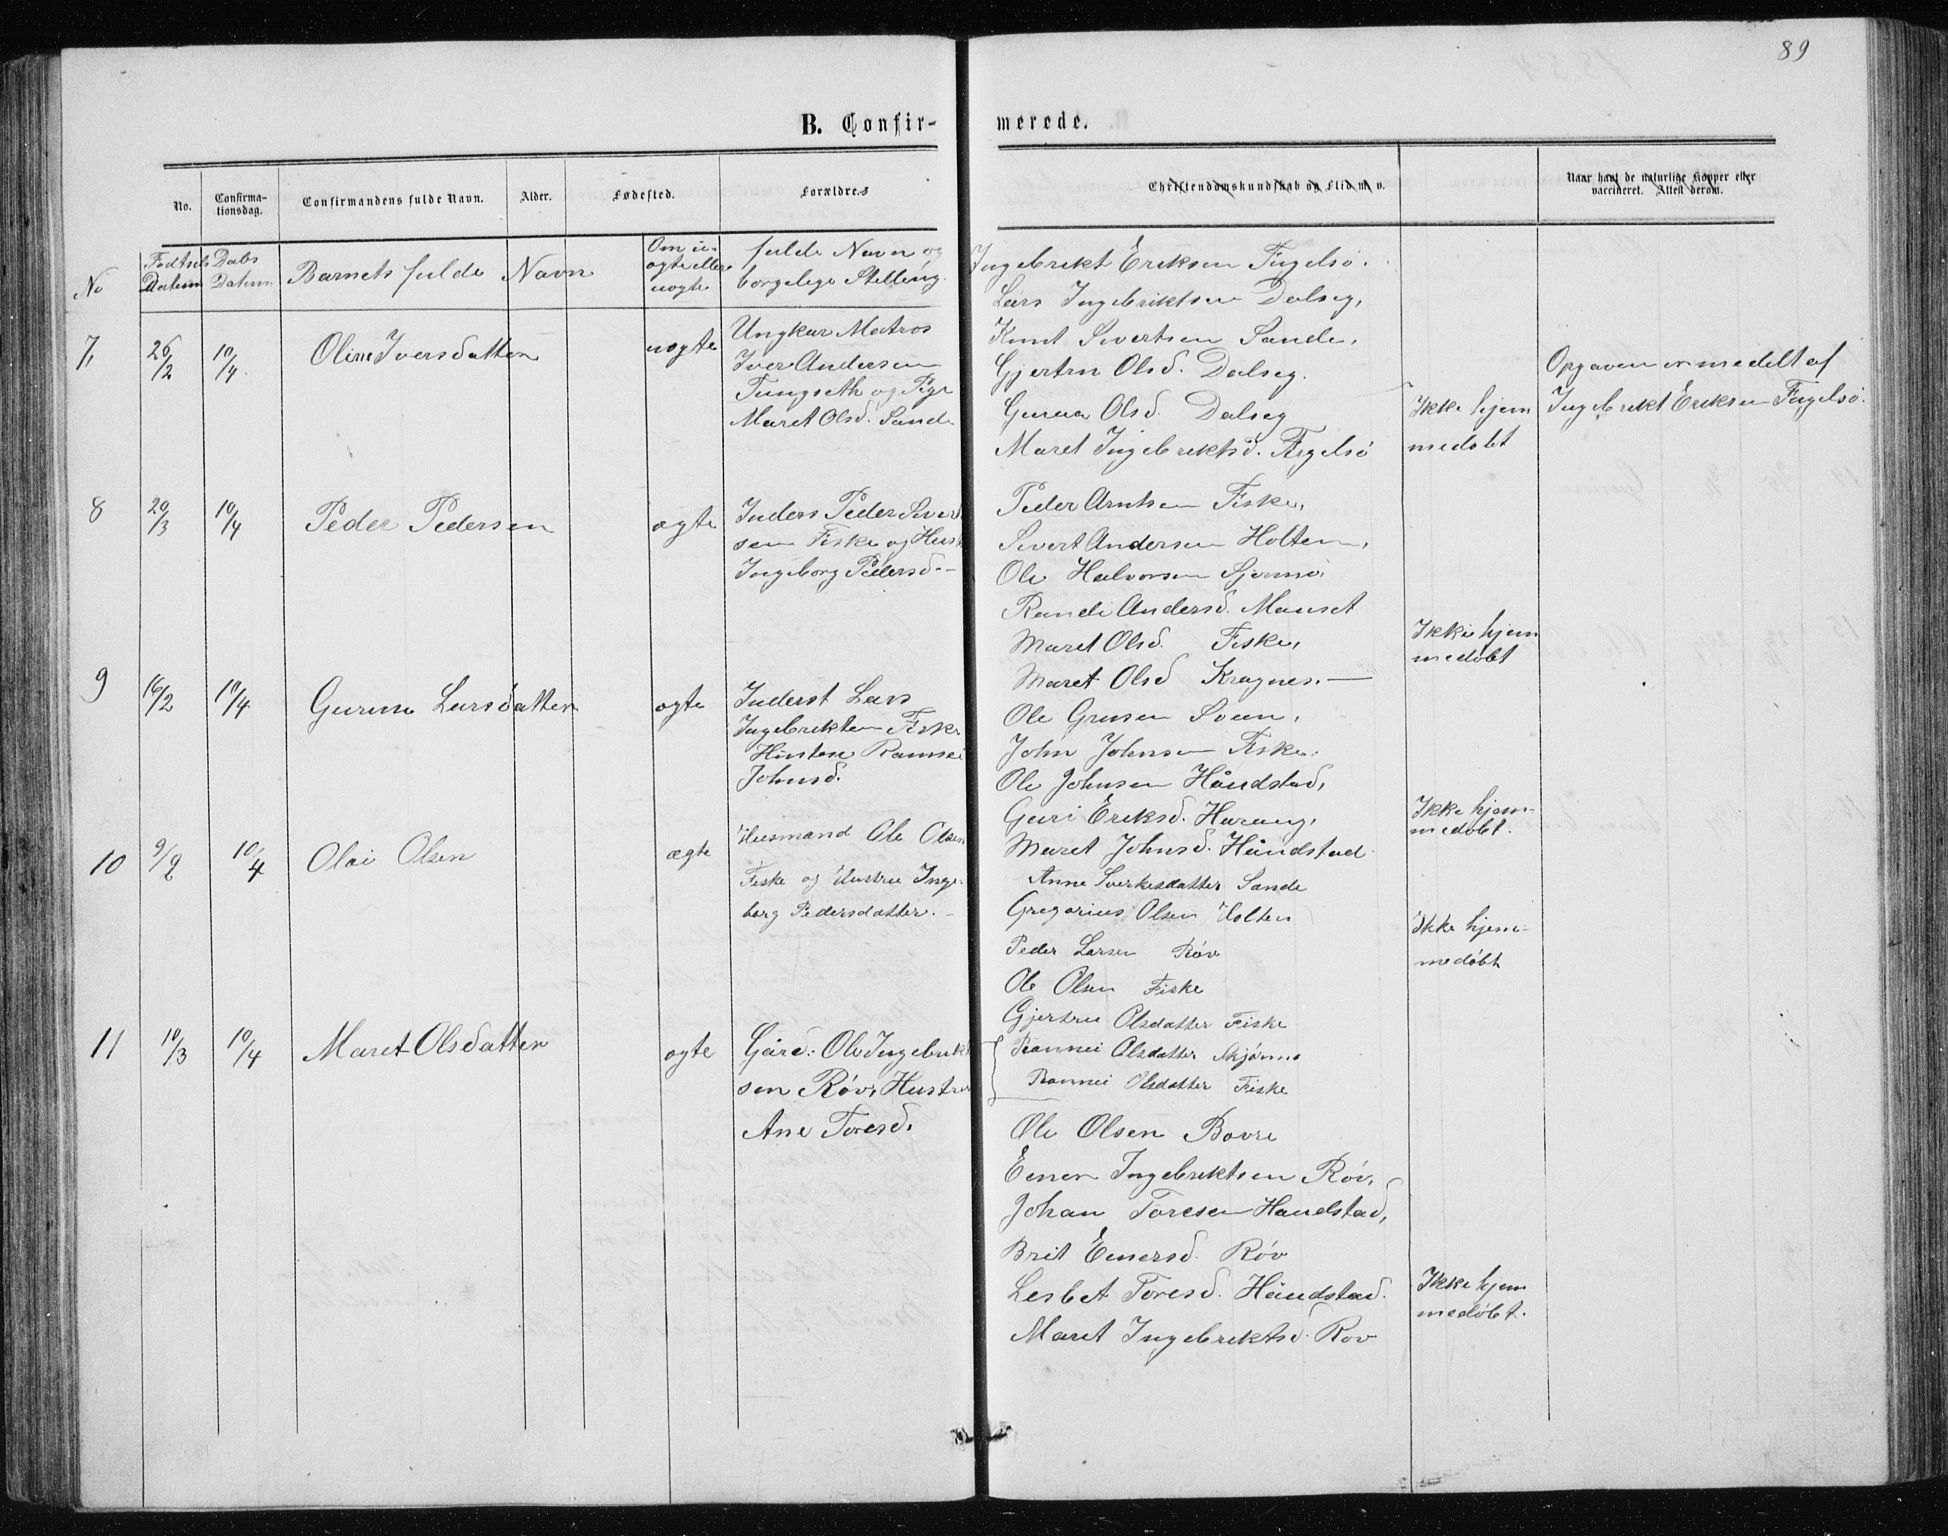 89
B. Confir-
merede.
No.
Confirma-
tionsdag.
Confirmandens fulde Navn.
Alder.
Fødested.
Forældres
Christendomskundskab og Flid m. v.
Naar havt de naturlige Kopper eller
vaccineret. Attest derom.
No
Fødsels
Datum
Dabs
Datum
Barnets fulde Navn
Om
ægte eller
uægte
fulde Navn og
borgelige Stilling.
7,
26/2
10/4
Oline Iversdatter
uægte
Ungkar Matros
Iver Andersen
Tungseth og Pige
Maret Olsd. Sande
Ingebrikt Eriksen Fugelsø.
Lars Ingebriktsen Dalseg,
Knut Sivertsen Sande,
Gjertru Olsd. Dalseg.
Gurua Olsd. Dalseg
Maret Ingebriktsd. Fugelsø
Ikke hjem
medøbt
Opgaven er medelt af
Ingebrikt Eriksen Fugelsø.
8
20/3
10/4
Peder Pedersen
ægte
Inders Peder Siver
sen Fiske og Hust
Ingeborg Pedersd.-
Peder Arntsen Fiske,
Sivert Andersen Holten,
Ole Halvorsen Sjermo,
Randi Andersd. Mauset
Maret Olsd. Fiske,
Maret Olsd Kragnes.
Ikke hjem
medøbt
9
16/2
10/4
Gurine Larsdatter
ægte
Inderst Lars
Ingebrikten Fiske
Hustue Rannei
Johnsd.
Ole Grusen Sveen,
John Johnsen Fiske.
Ole Johnsen Håndstad,
Guri Eriksd. Harang,
Maret Johnsd. Håndstad.
Anne Sverkesdatter Sande
Ikke hjem-
medøbt.
10
9/2
10/4
Oloi Olsen
ægte
Huusmand Ole Olsen
Fiske og Hustru Inge-
borg Pedersdatter.-
Gregorius Olsen Holten
Peder Larsen Røv
Ole Olsen Fiske
Gjertru Olsdatter Fiske
Rannei Olsdatter Skjørmo
Rannei Olsdatter Fiske
Ikke hjem-
medøbt
11
10/3
10/4
Maret Olsdatter
ægte
Gård: Ole Ingebrikt
sen Røv, Hustru
Ane Toresd.
Ole Olsen Bovre
Ener Ingebriktsen Røv,
Johan Toresen Handstad,
Brit Enersd. Røv
Lesbet Toresd. Håndstad.
Maret Ingebriktsd. Røv
Ikke hjem
medøbt.